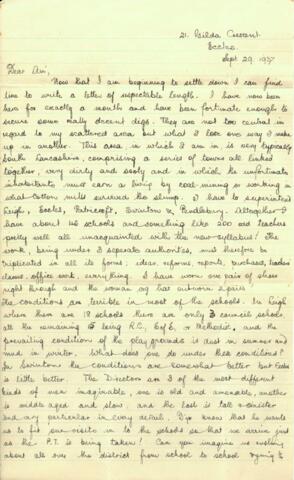 21. Gilda Crescent
Eccles
Sept 29. 1937
Dear Ain,
Now that I am beginning to settle down I can find
time to write a letter of respectable length. I have now been
here for exactly a month and have been fortunate enough to
secure some really decent digs. They are not too central in
regard to my scattered area but what I lose one way I make
up in another. This area in which I am in is very typically
South Lancashire, comprising a series of towns all linked
together, very dirty and sooty and in which the unfortunate
inhabitants must earn a living by coal-mining or working in
what cotton mills survived the slump. I have to superintend
Leigh, Eccles, Patricroft, Swinton & Pendlebury. Altogether I
have about 45 schools and something like 200 odd teachers
pretty well all unacquainted with the new syllabus! The
work, being under 3 separate authorities, must therefore be
triplicated in all its forms: ideas, reforms, reports, purchases, teachers
classes, office work, everything. I have worn one pair of shoes
right through and the woman
The conditions are terrible in most of the schools. In Leigh
where there are 18 schools there are only 3 council schools,
all the remaining 15 being R.C., C of E, or Methodist, and the
prevailing condition of the play grounds is dust in summer and
mud in winter. What does one do under these conditions?
In Swinton the conditions are somewhat better but Eccles
is little better. The Directors are 3 of the most different
kinds of men imaginable, one is old and amenable, another
is middle aged and slow, and the last is tall & sinister
and very particular in every detail. D'you know that he wants
us to fit our visits in to the schools so that we arrive just
as the P.T. is being taken! Can you imagine us rushing
about all over the district from school to school trying to